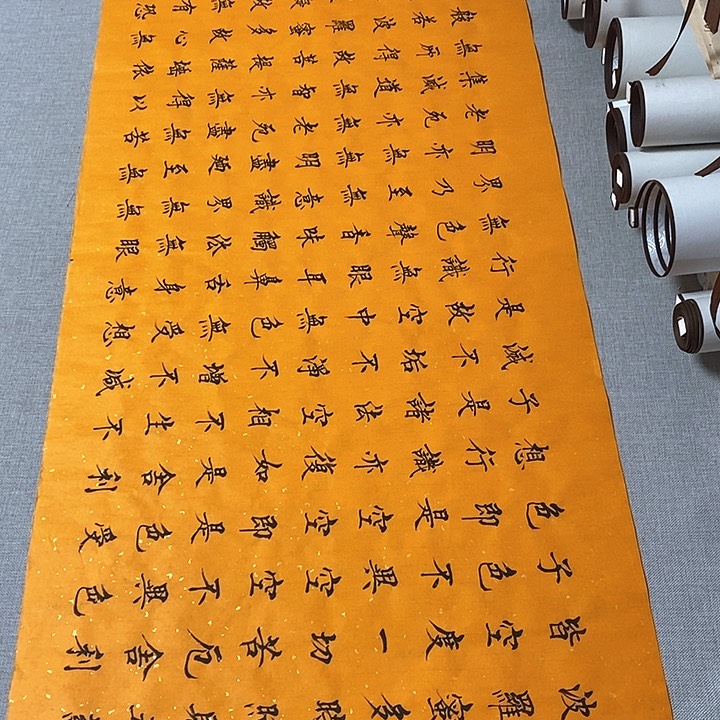 波羅蜜多時照見
皆空度一切苦厄舍利
子色不異空空不異色
色即是空空即是色受
想行識亦復如是舍利
子是諸法空相不生不
滅不垢不淨不增不減
是故空中無色無受想
行識無眼耳鼻舌身意
無色聲香味觸法無眼
界乃至無意識界無無
明亦無無明盡廼至無
老死亦無老死盡無苦
集滅道無智亦無得以
無所得故菩提薩埵依
般若波羅蜜多故心無
有恐